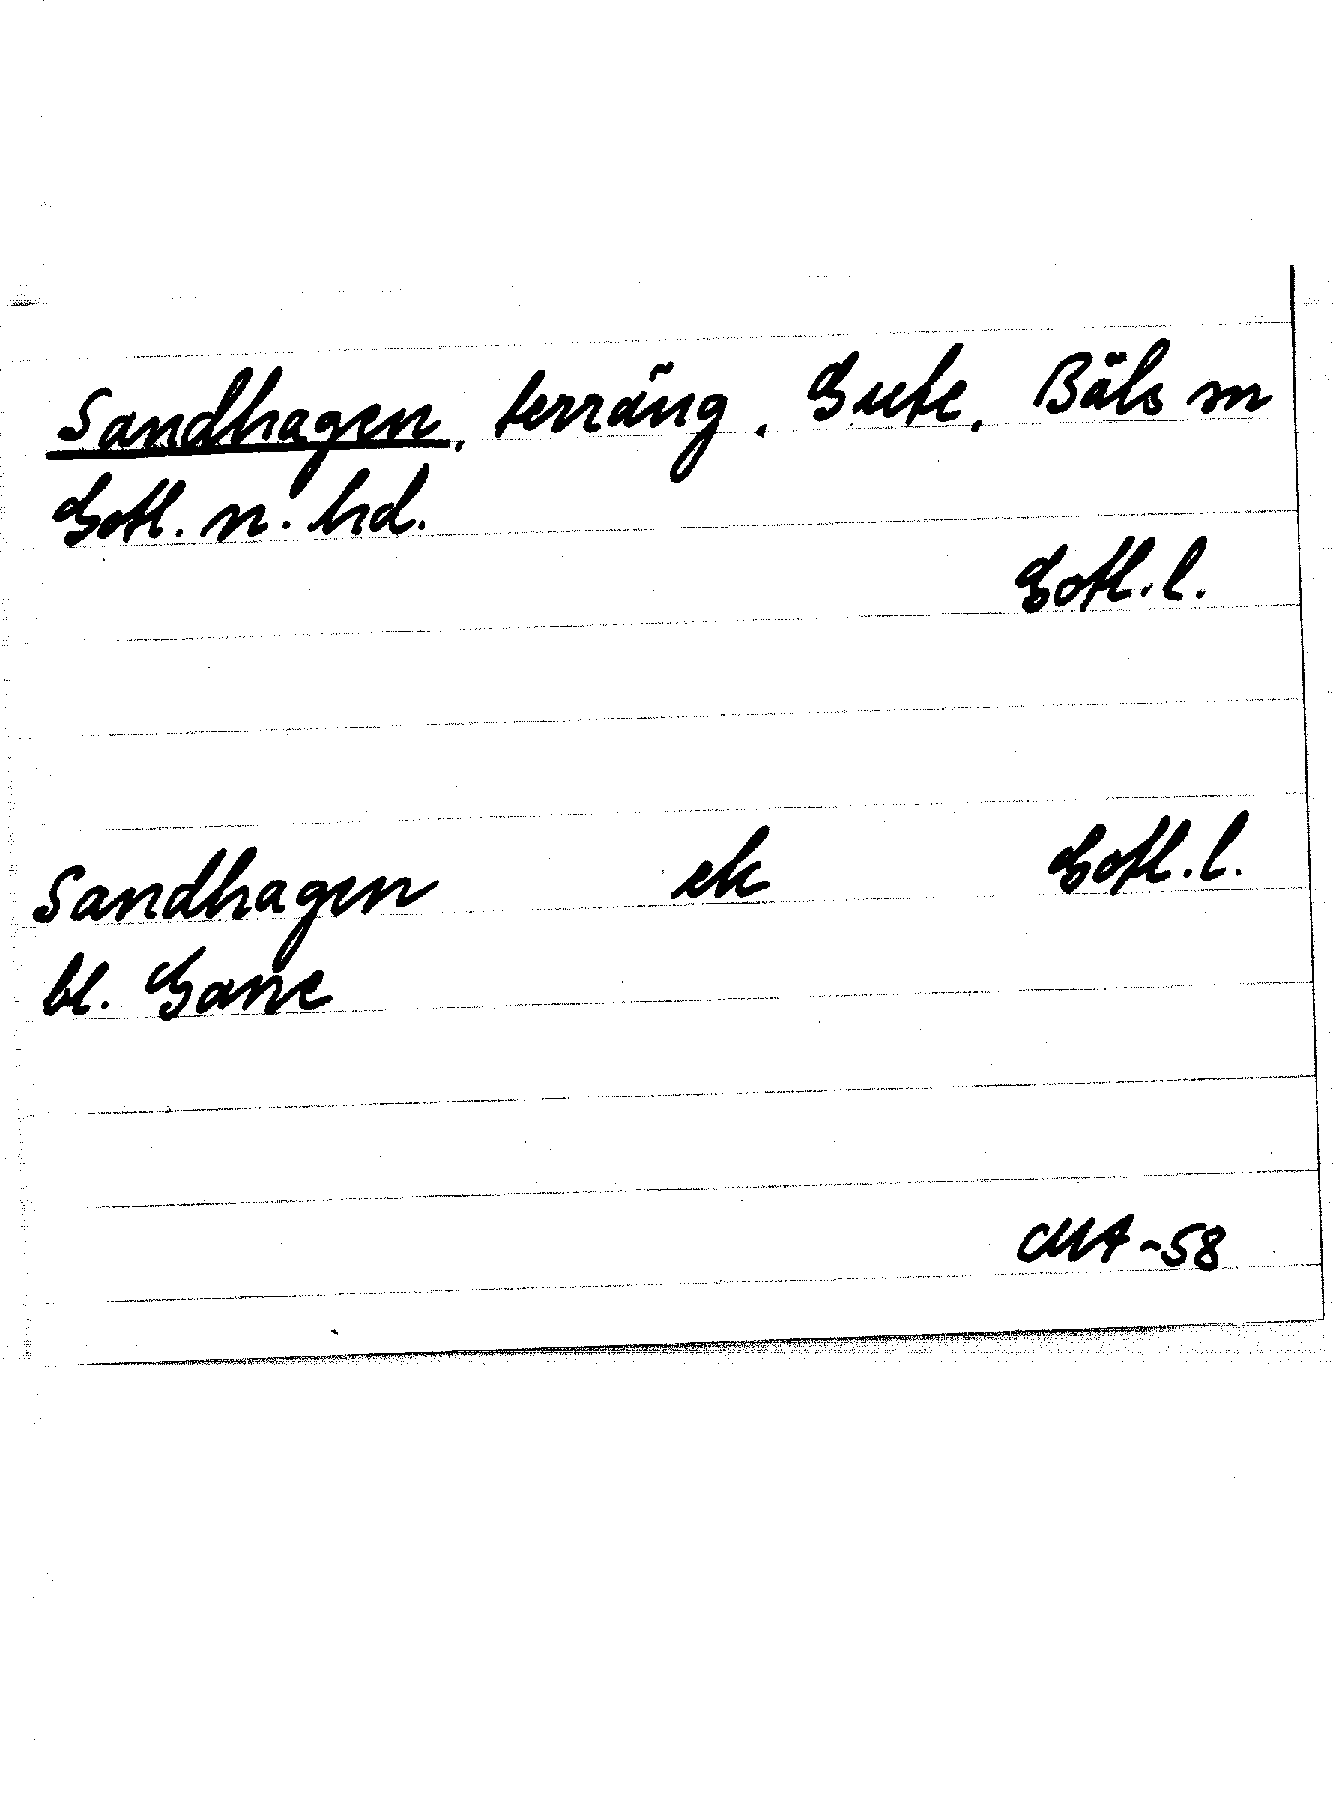 Sandhagen, terräng, Gute, Bäls sn
Gotl. n. hd.
Gotl. l.
Sandhagen ek Gotl. l.
bl. Gane
MA -58